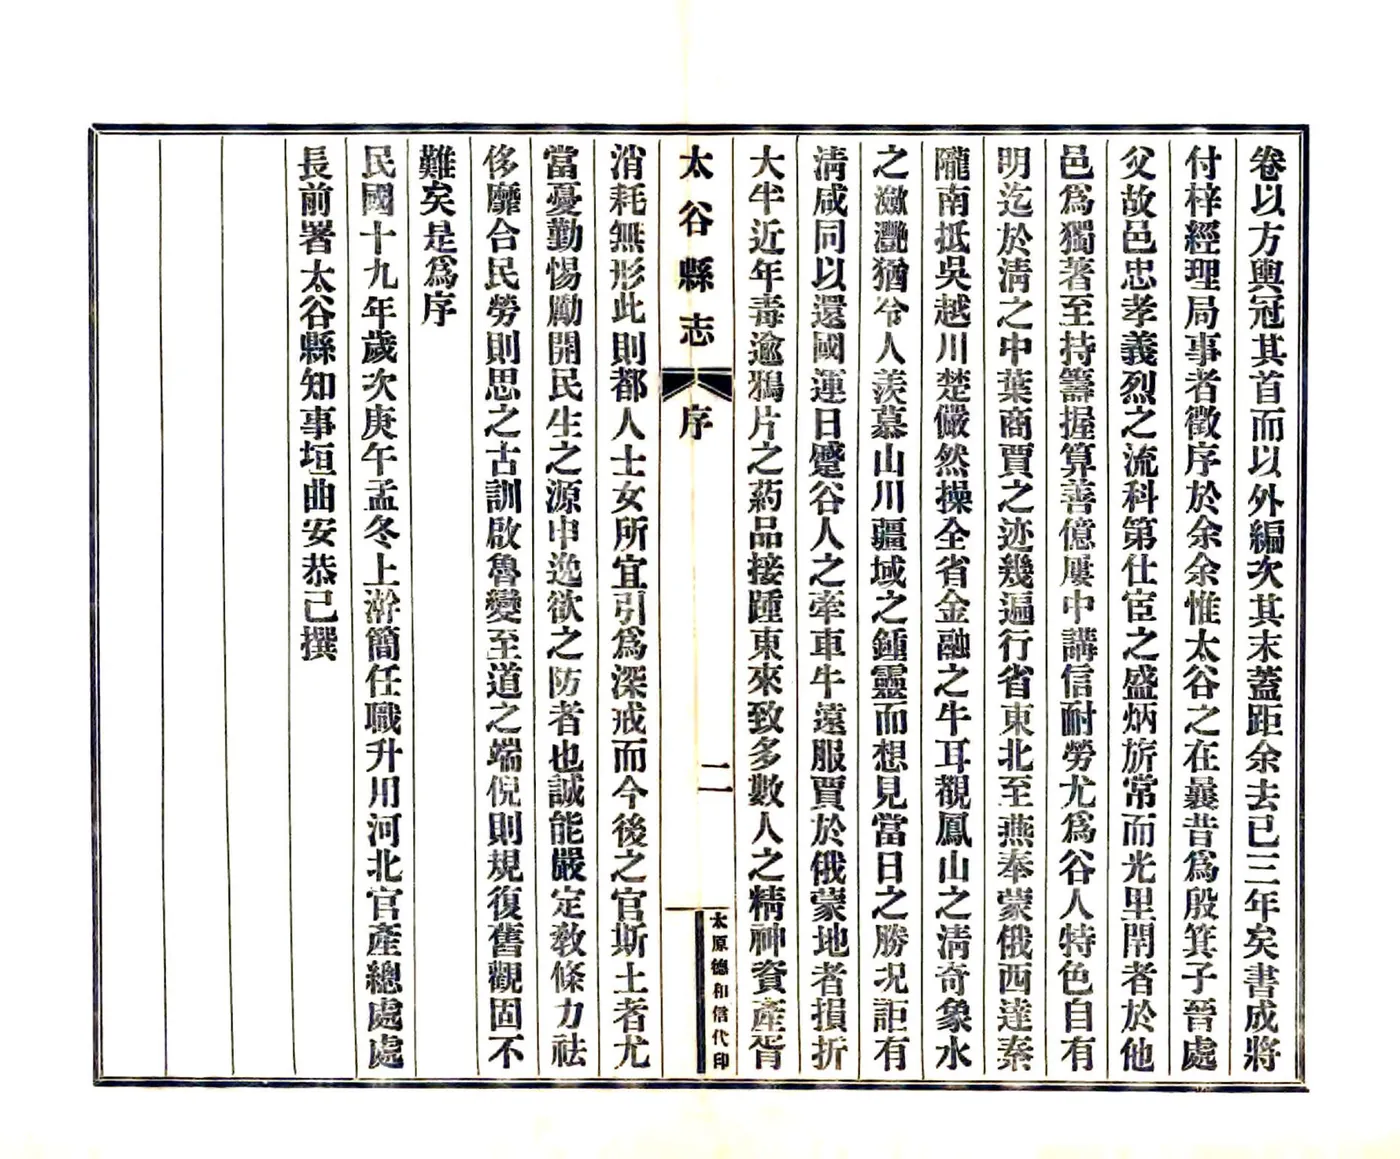 卷以方輿冠其首而以外編次其末蓋距余去已三年矣書成將
付梓經理局事者徵序於余余惟太谷之在曩昔爲殷箕子晉處
父故邑忠孝義烈之流科第仕宦之盛炳旂常而光里閈者於他
邑爲獨著至持籌握算善億屢中講信耐勞尤爲谷人特色自有
明迄於淸之中葉商賈之迹幾遍行省東北至燕奉蒙俄西達秦
隴南抵吳越川楚儼然操全省金融之牛耳觀鳳山之淸奇象水
之瀲灧猶令人羨慕山川疆域之鍾靈而想見當日之勝況詎有
淸咸同以還國運日蹙谷人之牽車牛遠服賈於俄蒙地者損折
大半近年毒逾鴉片之葯品接踵東來致多數人之精神資產胥
太谷縣志
序
二
太原德和信代印
消耗無形此則都人士女所宜引爲深戒而今後之官斯土者尤
當憂勤惕勵開民生之源申逸欲之防者也誠能嚴定敎條力祛
侈靡合民勞則思之古訓啟魯變至道之端倪則規復舊觀固不
難矣是爲序
民國十九年歲次庚午孟冬上澣簡任職升用河北官產總處處
長前署太谷縣知事垣曲安恭己撰